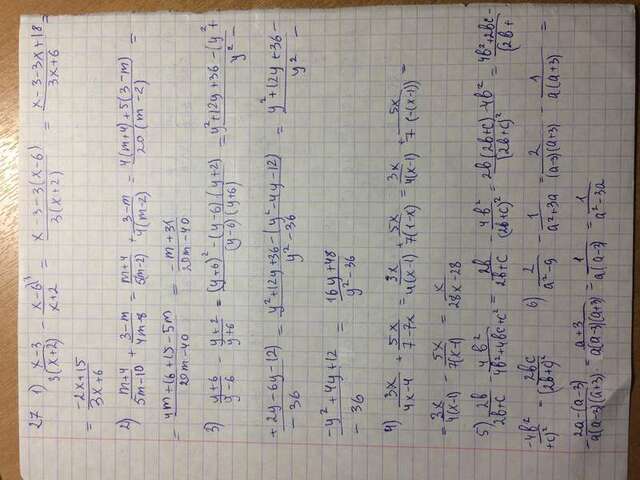 27 1) x-3/3(x+2) - x-6^3/x+2 = x-3-3(x-6)/3(x+2) = x-3-3x+18/3x+6 =
= -2x+15/3x+6
2) m+4/5m-10 + 3-m/4m-8 = m+4/5(m-2) + 3-m/4(m-2) = 4(m+4)+5(3-m)/20(m-2) =
= 4m+16+15-5m/20m-40 = -m+31/20m-40
3) y+6/y-6 - y+2/y+6 = (y+6)²-(y-6)(y+2)/(y-6)(y+6) = y²+12y+36-(y²+/y²-
+2y-6y-12)/-36 = y²+12y+36-(y²-4y-12)/y²-36 = y²+12y+36-/y²-
-y²+4y+12/-36 = 16y+48/y²-36
4) 3x/4x-4 + 5x/7-7x = 3x/4(x-1) + 5x/7(1-x) = 3x/4(x-1) + 5x/7(-(x-1)) =
= 3x/4(x-1) - 5x/7(x-1) = x/28x-28
5) 2b/2b+c - 4b²/4b²+4bc+c² = 2b/2b+c - 4b²/(2b+c)² = 2b(2b+c)-4b²/(2b+c)² = 4b²+2bc-/(2b+
-4b²/+c)² = 2bc/(2b+c)² 6) 2/a²-9 - 1/a²+3a = 2/(a-3)(a+3) - 1/a(a+3) =
= 2a-(a-3)/a(a-3)(a+3) = a+3/a(a-3)(a+3) = 1/a(a-3) = 1/a²-3a